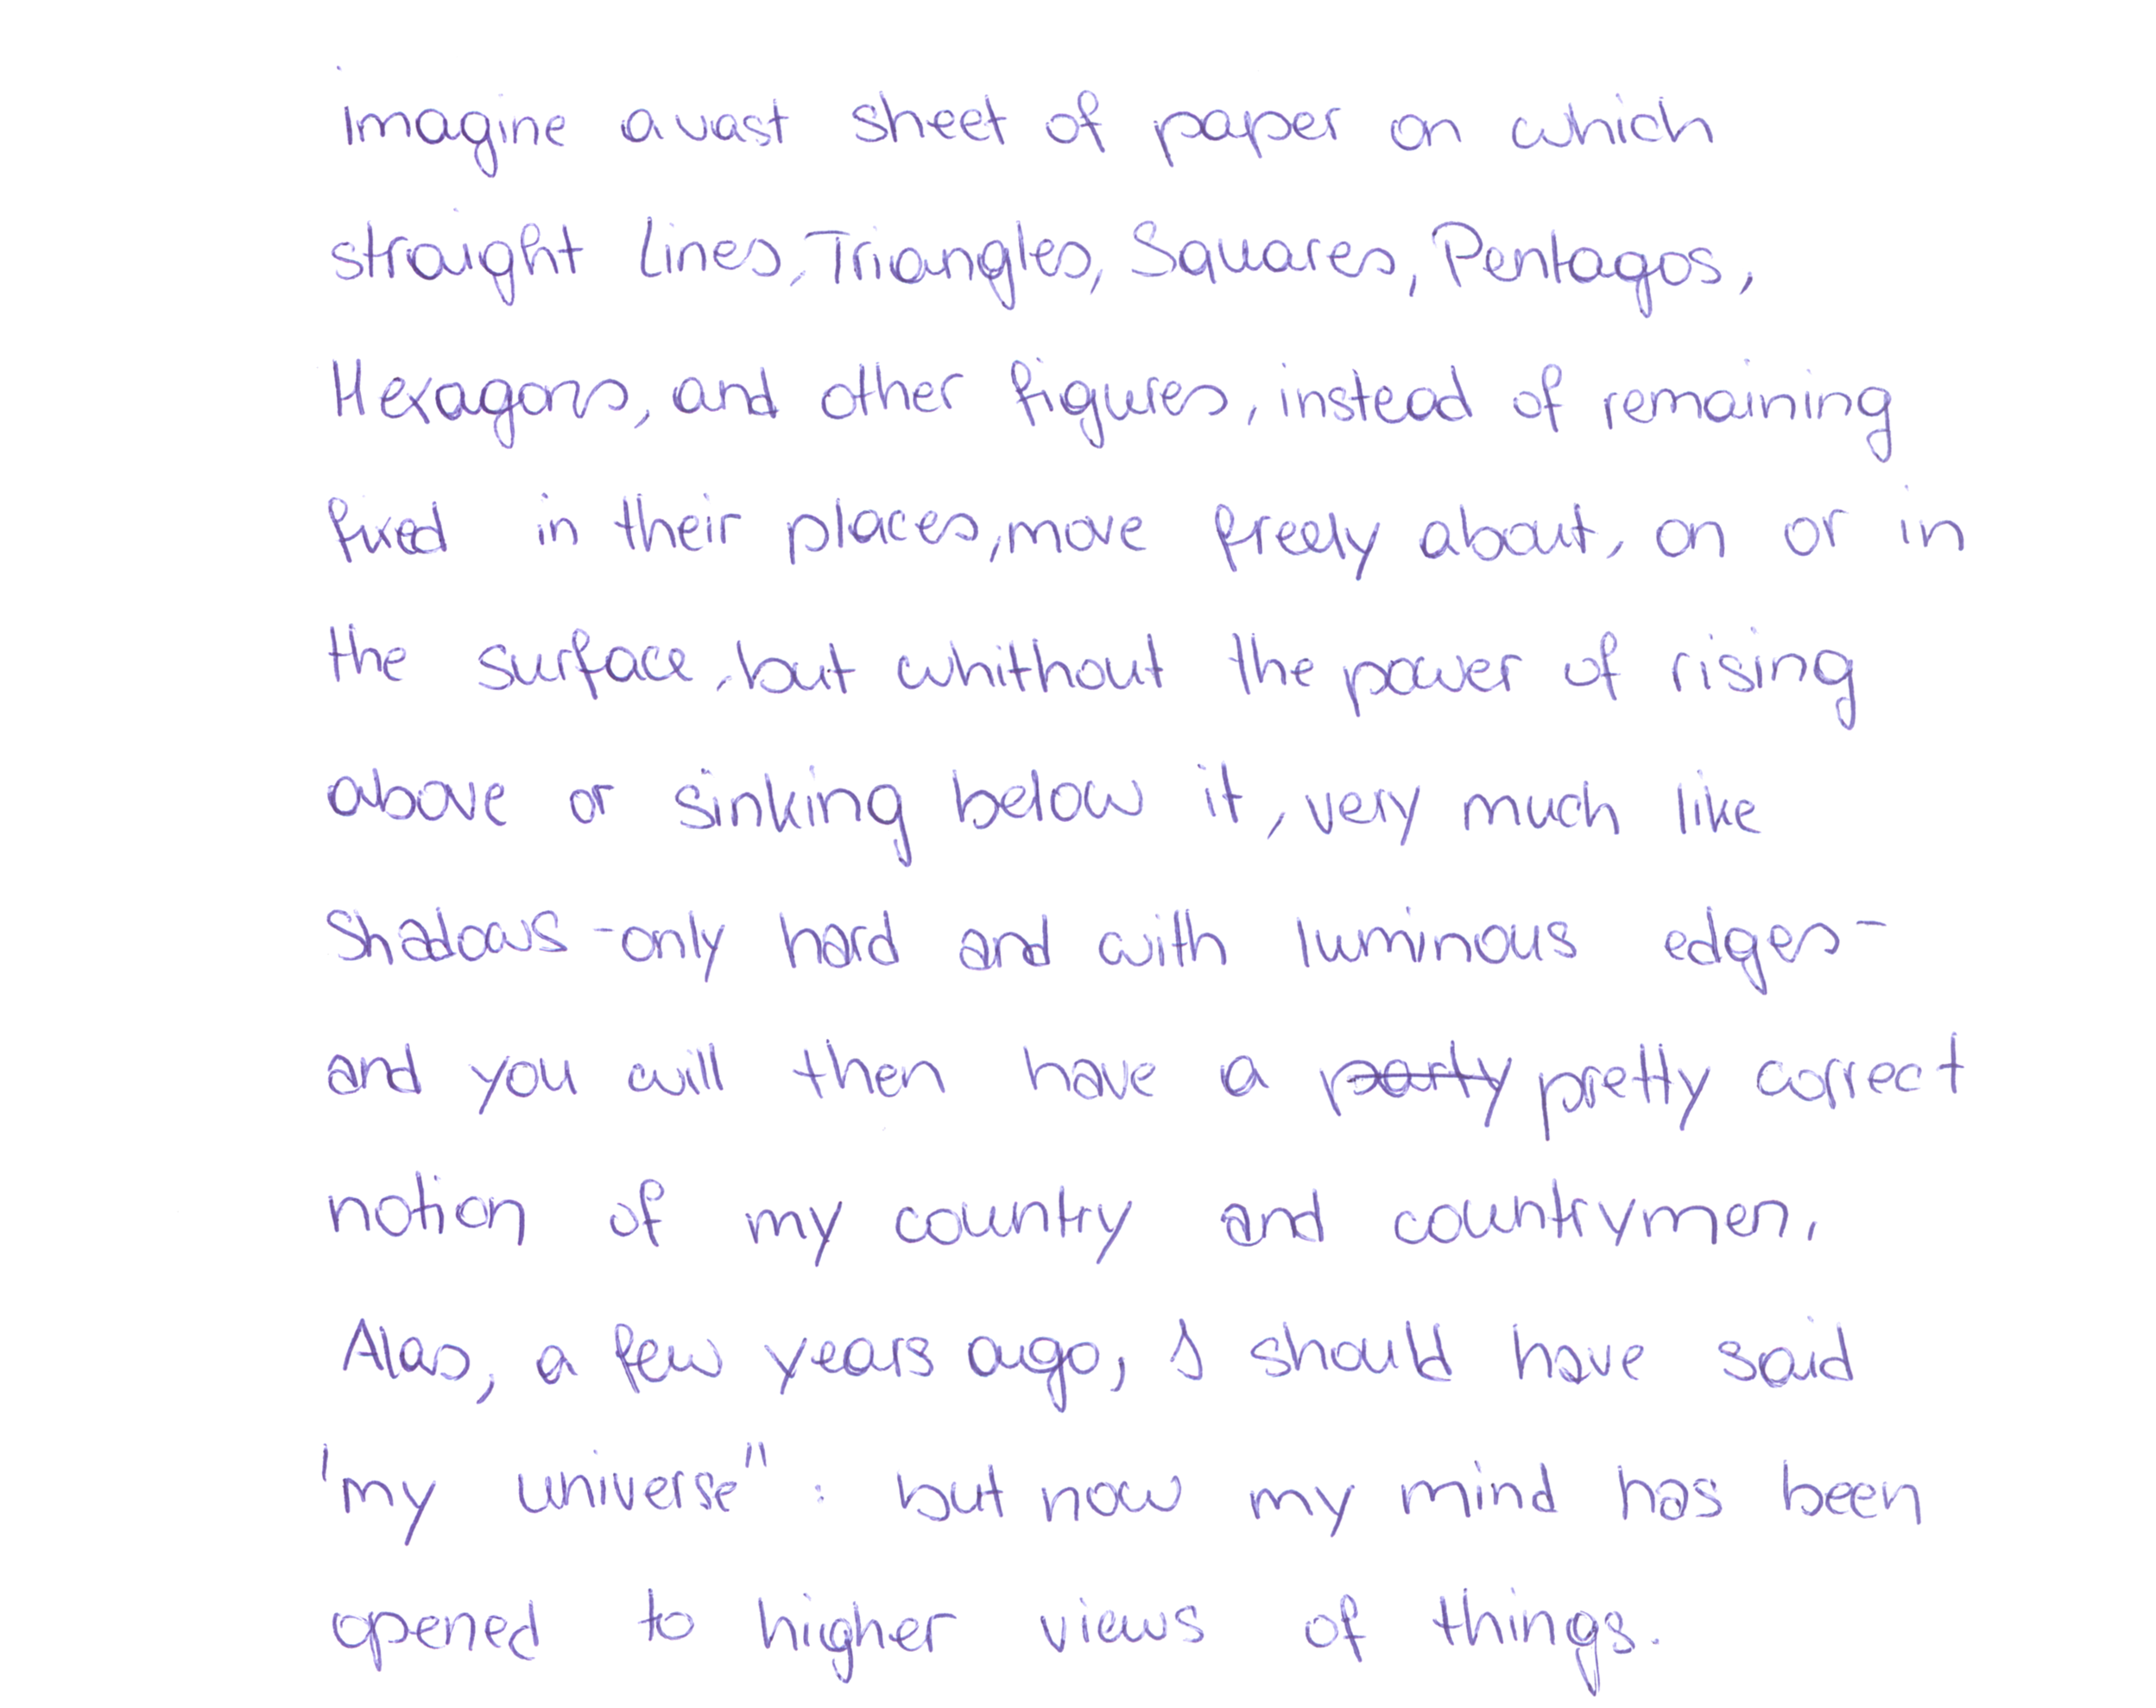 imagine a vast sheet of paper on which
straight lines, Triangles, Squares, Pentagos,
Hexagons, and other figures, instead of remaining
fixed in their places, move freely about, on or in
the surface, but whithout the power of rising
above or sinking below it, very much like
shadows - only hard and with luminous edges -
and you will then have a party pretty correct
notion of my country and countrymen.
Alas, a few years ago, I should have said
'my universe" : but now my mind has been
opened to higher views of things.